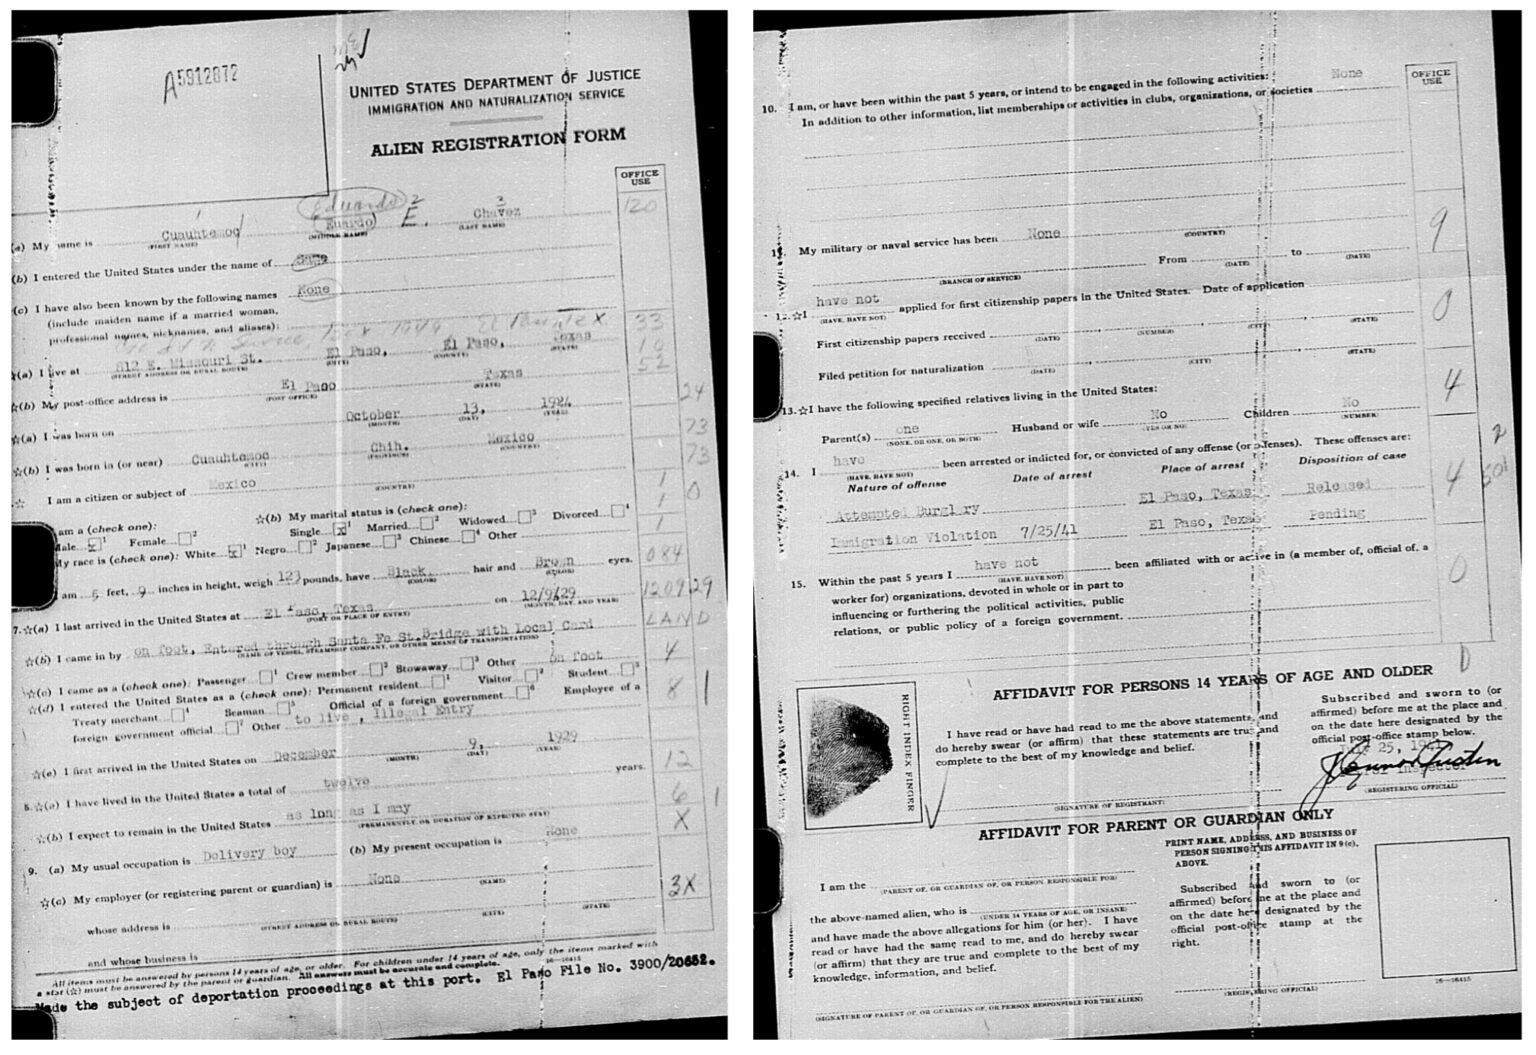 A5912872
UNITED STATES DEPARTMENT OF JUSTICE
IMMIGRATION AND NATURALIZATION SERVICE
ALIEN REGISTRATION FORM
OFFICE USE
Eduardo 2 3
(a) My name is Cuauhtemoc (Euardo) E. Chavez 120
(FIRST NAME) (MIDDLE NAME) (LAST NAME)
(b) I entered the United States under the name of Same
(c) I have also been known by the following names None
(include maiden name if a married woman,
professional names, nicknames, and aliases):
☆(a) I live at 812 E. Missouri St. El Paso, El Paso, Texas 33 10
(STREET ADDRESS OR RURAL ROUTE) (CITY) (COUNTY) (STATE)
☆(b) My post-office address is El Paso Texas 52
(POST OFFICE) (STATE)
☆(a) I was born on October 13, 1924 24
(MONTH) (DAY) (YEAR)
☆(b) I was born in (or near) Cuauhtemoc Chih. Mexico 73
(CITY) (PROVINCE) (COUNTRY)
☆ I am a citizen or subject of Mexico 73
(COUNTRY)
am a (check one): ☆(b) My marital status is (check one): 1
Male x 1 Female 2 Single x 1 Married 2 Widowed 3 Divorced 4 1 0
My race is (check one): White x 1 Negro 2 Japanese 3 Chinese 4 Other 1
am 5 feet, 9 inches in height, weigh 123 pounds, have Black hair and Brown eyes. 084
(COLOR) (COLOR)
7.☆(a) I last arrived in the United States at El Paso, Texas on 12/9/29 120929
(PORT OR PLACE OF ENTRY) (MONTH, DAY, AND YEAR)
☆(b) I came in by on foot, Entered through Santa Fe St. Bridge with Local Card LAND
(NAME OF VESSEL, STEAMSHIP COMPANY, OR OTHER MEANS OF TRANSPORTATION)
☆(c) I came as a (check one): Passenger 1 Crew member 2 Stowaway 3 Other on foot 4
☆(d) I entered the United States as a (check one): Permanent resident 1 Visitor 2 Student 3
Treaty merchant 4 Seaman 5 Official of a foreign government 6 Employee of a 8 1
foreign government official 7 Other to live, Illegal Entry
☆(e) I first arrived in the United States on December 9, 1929
(MONTH) (DAY) (YEAR)
8.☆(a) I have lived in the United States a total of twelve years. 12
☆(b) I expect to remain in the United States as long as I may 6 1
(PERMANENTLY, OR DURATION OF EXPECTED STAY)
9. (a) My usual occupation is Delivery boy (b) My present occupation is None X
☆(c) My employer (or registering parent or guardian) is None
(NAME)
whose address is 3X
(STREET ADDRESS OR RURAL ROUTE) (CITY) (STATE)
and whose business is
All items must be answered by persons 14 years of age, or older. For children under 14 years of age, only the items marked with
a star (☆) must be answered by the parent or guardian. All answers must be accurate and complete. 16—16415
Made the subject of deportation proceedings at this port. El Paso File No. 3900/20652.
10. I am, or have been within the past 5 years, or intend to be engaged in the following activities: None
In addition to other information, list memberships or activities in clubs, organizations, or societies
OFFICE USE
11. My military or naval service has been None 9
(COUNTRY)
From to
(BRANCH OF SERVICE) (DATE) (DATE)
12.☆I have not applied for first citizenship papers in the United States. Date of application
(HAVE, HAVE NOT)
First citizenship papers received 0
(DATE) (NUMBER) (CITY) (STATE)
Filed petition for naturalization
(DATE) (CITY) (STATE)
13.☆I have the following specified relatives living in the United States: 4
Parent(s) one Husband or wife No Children No
(NONE, OR ONE, OR BOTH) (YES OR NO) (NUMBER)
14. I have been arrested or indicted for, or convicted of any offense (or offenses). These offenses are: 2
(HAVE, HAVE NOT)
Nature of offense Date of arrest Place of arrest Disposition of case
Attempted Burglary El Paso, Texas Released 4 501
Immigration Violation 7/25/41 El Paso, Texas Pending
15. Within the past 5 years I have not been affiliated with or active in (a member of, official of, a
(HAVE, HAVE NOT)
worker for) organizations, devoted in whole or in part to 0
influencing or furthering the political activities, public
relations, or public policy of a foreign government.
D
AFFIDAVIT FOR PERSONS 14 YEARS OF AGE AND OLDER
RIGHT INDEX FINGER
I have read or have had read to me the above statements, and
do hereby swear (or affirm) that these statements are true and
complete to the best of my knowledge and belief.
(SIGNATURE OF REGISTRANT)
Subscribed and sworn to (or
affirmed) before me at the place and
on the date here designated by the
official post-office stamp below.
25, 1941
(REGISTERING OFFICIAL)
AFFIDAVIT FOR PARENT OR GUARDIAN ONLY
PRINT NAME, ADDRESS, AND BUSINESS OF
PERSON SIGNING THIS AFFIDAVIT IN 9 (c),
ABOVE.
I am the
(PARENT OF, OR GUARDIAN OF, OR PERSON RESPONSIBLE FOR)
the above-named alien, who is
(UNDER 14 YEARS OF AGE, OR INSANE)
and have made the above allegations for him (or her). I have
read or have had the same read to me, and do hereby swear
(or affirm) that they are true and complete to the best of my
knowledge, information, and belief.
(SIGNATURE OF PARENT OF, OR GUARDIAN OF, OR PERSON RESPONSIBLE FOR THE ALIEN)
Subscribed and sworn to (or
affirmed) before me at the place and
on the date here designated by the
official post-office stamp at the
right.
(REGISTERING OFFICIAL)
16—16415